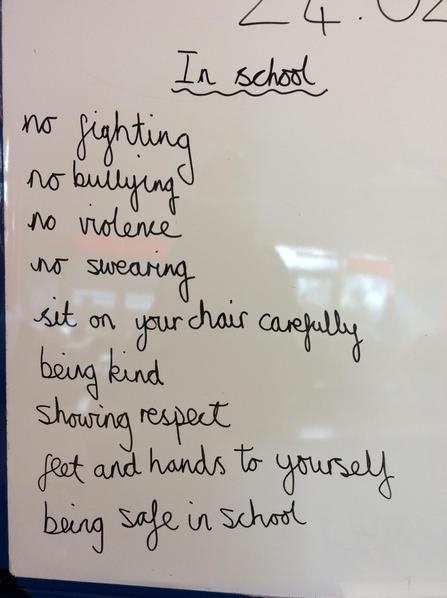 24.02
In school
no fighting
no bullying
no violence
no swearing
sit on your chair carefully
being kind
showing respect
feet and hands to yourself
being safe in school